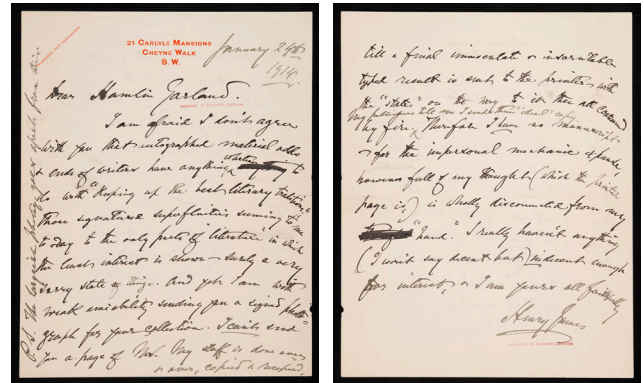 21 CARLYLE MANSIONS
CHEYNE WALK
S.W.
January 24th
1914.
Dear Hamlin Garland.
I am afraid I don't agree
with you that autographed material odds
& ends of writers have anything whatever to
do with "Keeping up the best literary traditions."
Those signatured superfluities seeming to me
today to be the only parts of "literature" in which
the least interest is shown — surely a very
sorry state of things. And yet I am with
weak amiability sending you a signed photo-
graph for your collection. I can't send
you a page of MS. My stuff is done over
& over, copied & recopied,
P.S. The large photograph goes apart from this
till a final immaculate or inscrutable
typed result is sent to the printer — with
the "states" on the way to it then all
my fire. Therefore I have no manuscript
— for the impersonal mechanic
however full of my thought (which the printed
page is,) is wholly discounted from my
"hand." I really haven't anything
(I won't say decent but) indecent enough
for interest, & I am yours all faithfully
Henry James